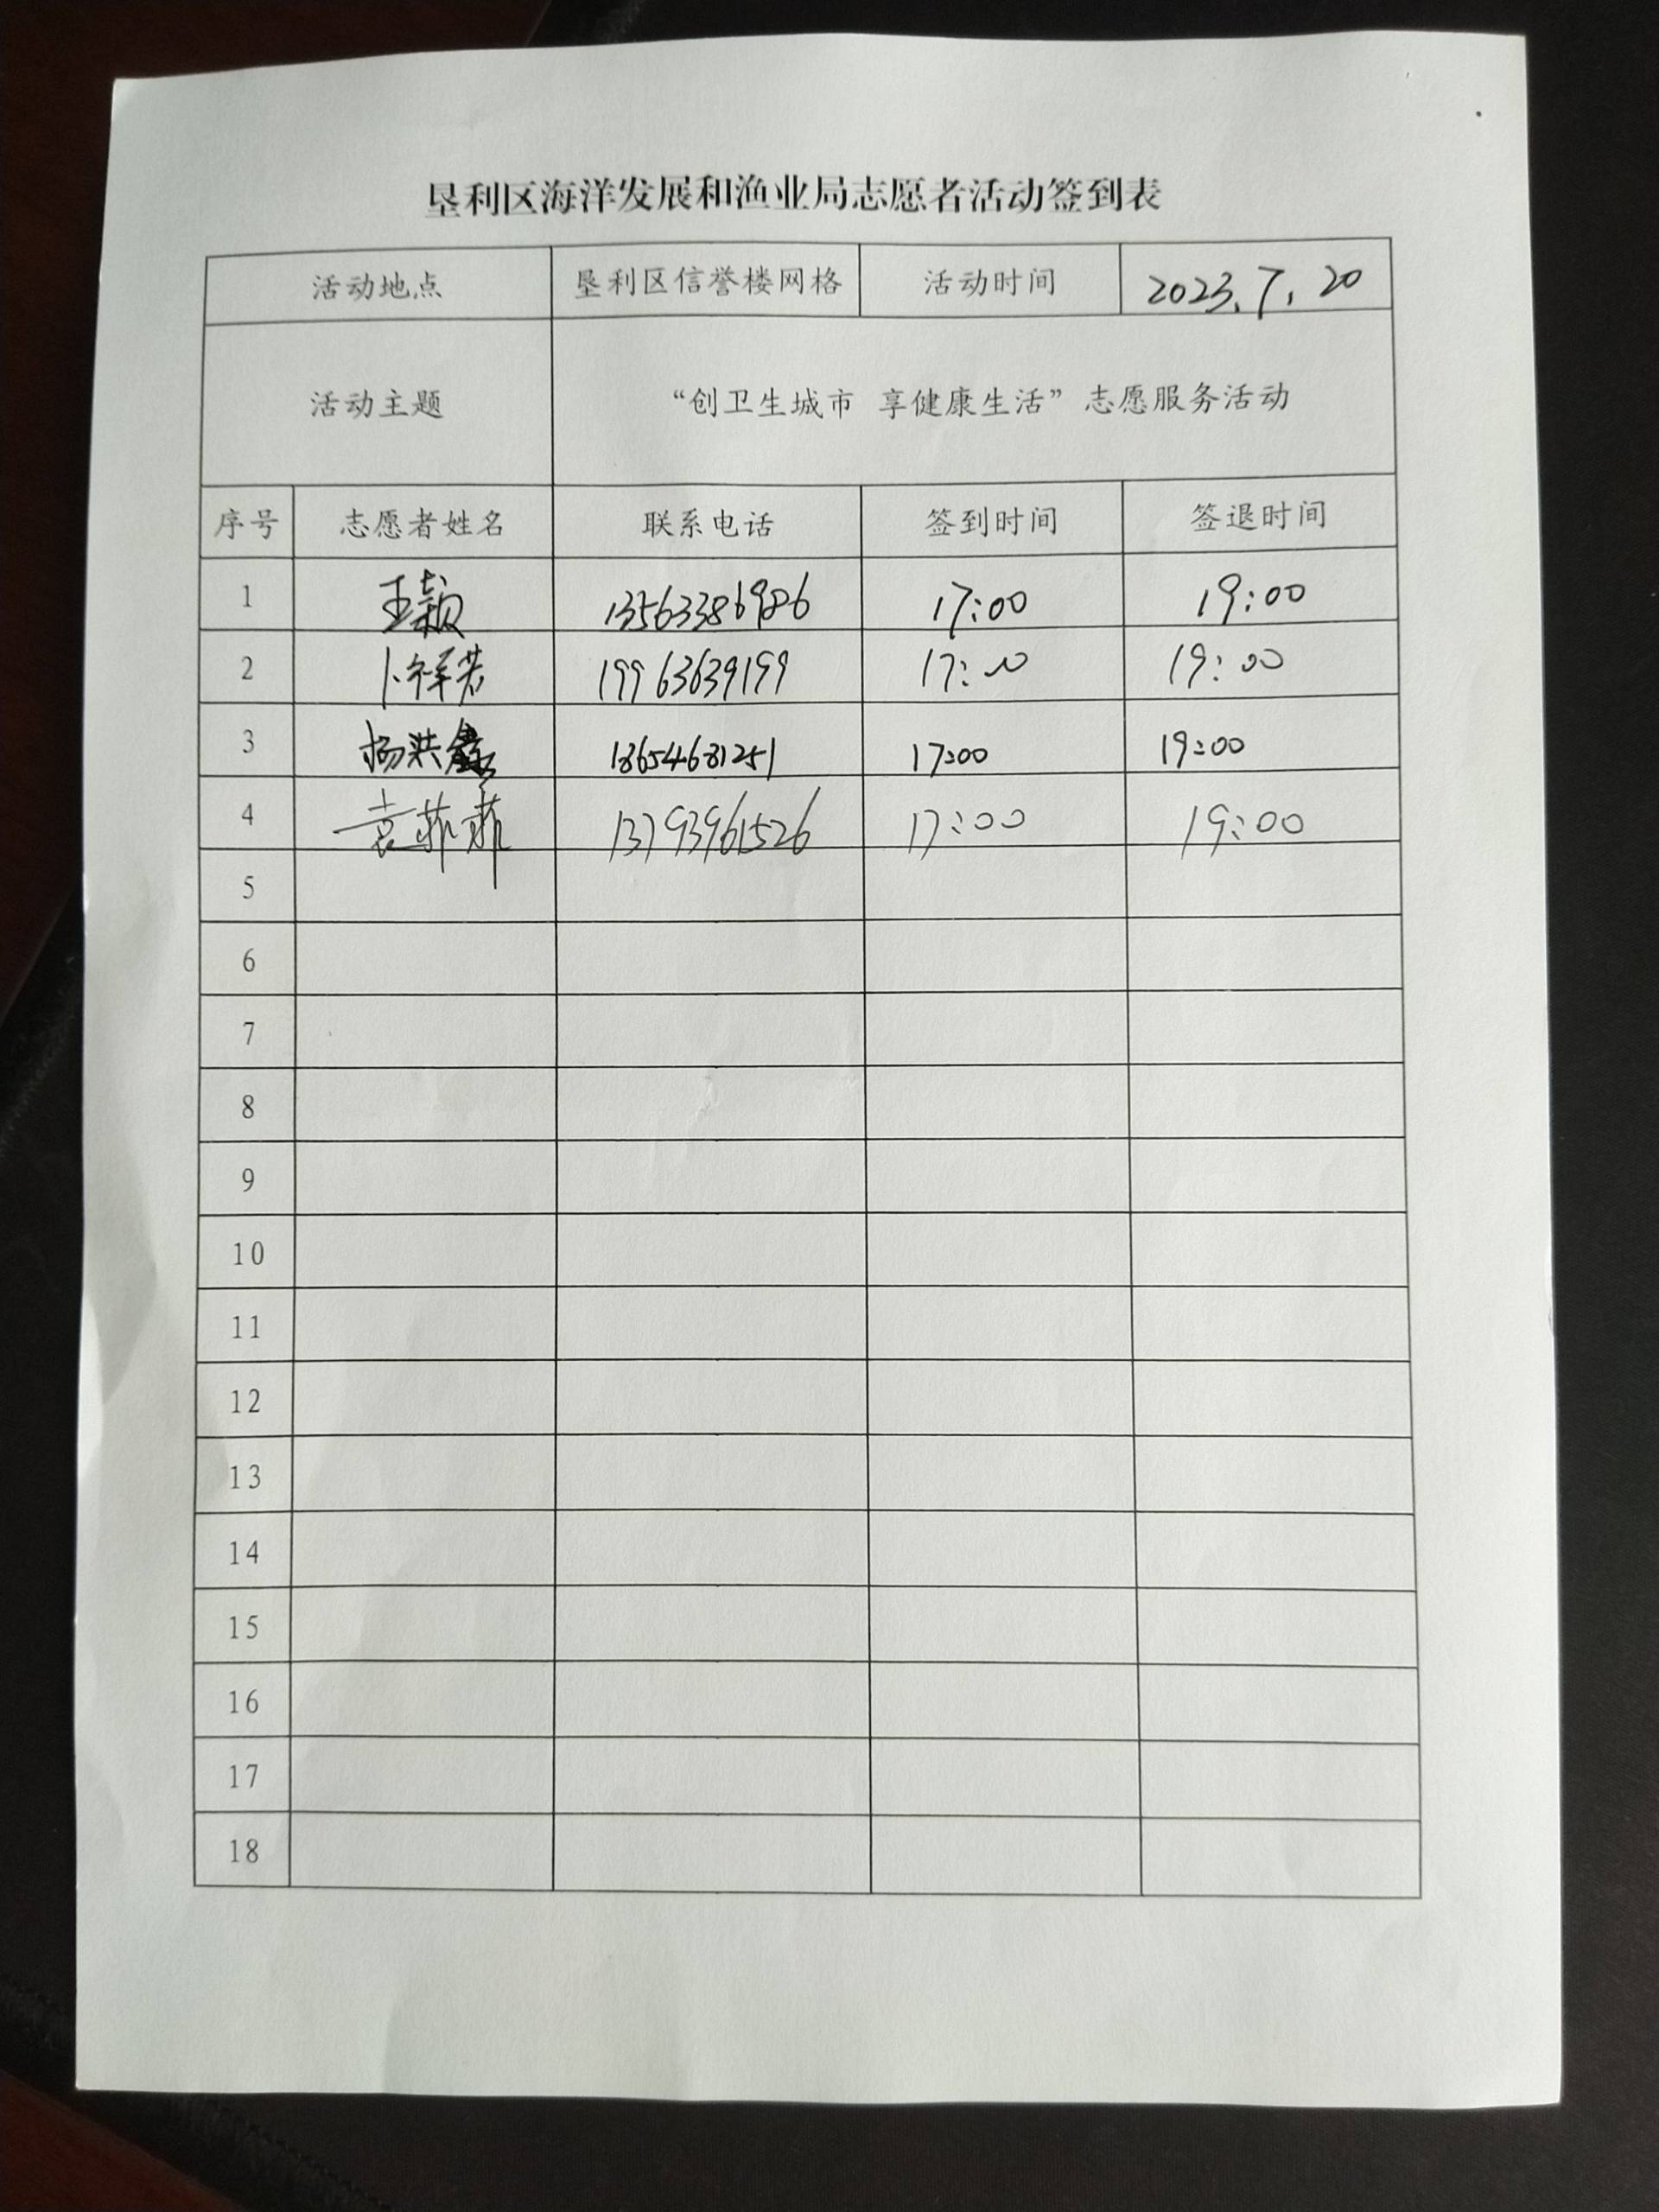 垦利区海洋发展和渔业局志愿者活动签到表
活动地点 垦利区信誉楼网格 活动时间 2023.7.20
活动主题 “创卫生城市 享健康生活”志愿服务活动
序号 志愿者姓名 联系电话 签到时间 签退时间
1 王颖 13563386986 17:00 19:00
2 卜祥芸 19963639199 17:00 19:00
3 杨洪鑫 13654681251 17:00 19:00
4 袁菲菲 13793961526 17:00 19:00
5
6
7
8
9
10
11
12
13
14
15
16
17
18